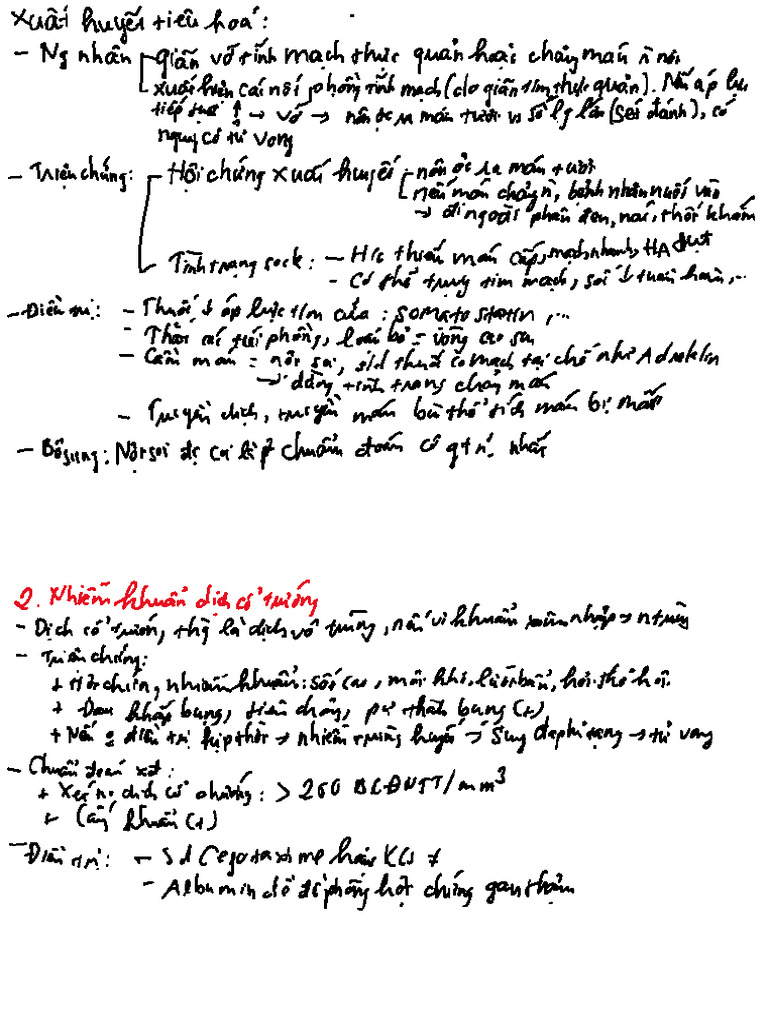 Xuất huyết tiêu hoá:
- Ng nhân giãn vỡ tĩnh mạch thực quản hoặc chảy máu rỉ
xuất hiện cái nối phồng tĩnh mạch (do giãn t/m thực quản). Nếu áp lực
tiếp tục ↑ → vỡ → nôn ộc ra máu tươi vs số lg lớn (sét đánh), có
nguy cơ tử vong
- Triệu chứng: Hội chứng xuất huyết - nôn ộc ra máu tươi
nếu máu chảy rỉ, bệnh nhân nuốt vào
→ đi ngoài phân đen, nát, thối khắm
Tình trạng sock: - H/c thiếu máu cấp, mạch nhanh, HA tụt
- Có thể truỵ tim mạch, suy tuần hoàn,...
- Điều trị: - Thuốc ↓ áp lực t/m cửa: somatostatin,...
- Thắt các túi phồng, loại bỏ = vòng cao su
- Cầm máu = nội soi, s/d thuốc co mạch tại chỗ như Adrenalin
→ dừng tình trạng chảy máu
- Truyền dịch, truyền máu bù thể tích máu bị mất
- Bổ sung: Nội soi để can thiệp chuẩn đoán có qt nhất
2. Nhiễm khuẩn dịch cổ trướng
- Dịch cổ trướng, thg là dịch vô trùng, nếu vi khuẩn xâm nhập → n trùng
- Triệu chứng:
+ H/c nhiễm khuẩn: sốt cao, môi khô, lưỡi bẩn, hơi thở hôi
+ Đau khắp bụng, tiêu chảy, pư thành bụng (+)
+ Nếu điều trị kịp thời → nhiễm trùng huyết → suy đa phủ tạng → tử vong
- Chuẩn đoán xđ:
+ Xét no dịch cổ chướng: > 250 BCĐNTT/mm³
+ Cấy khuẩn (+)
- Điều trị: - Sd Cefotaxime hoặc KS ≠
- Albumin để đề phòng hội chứng gan thận